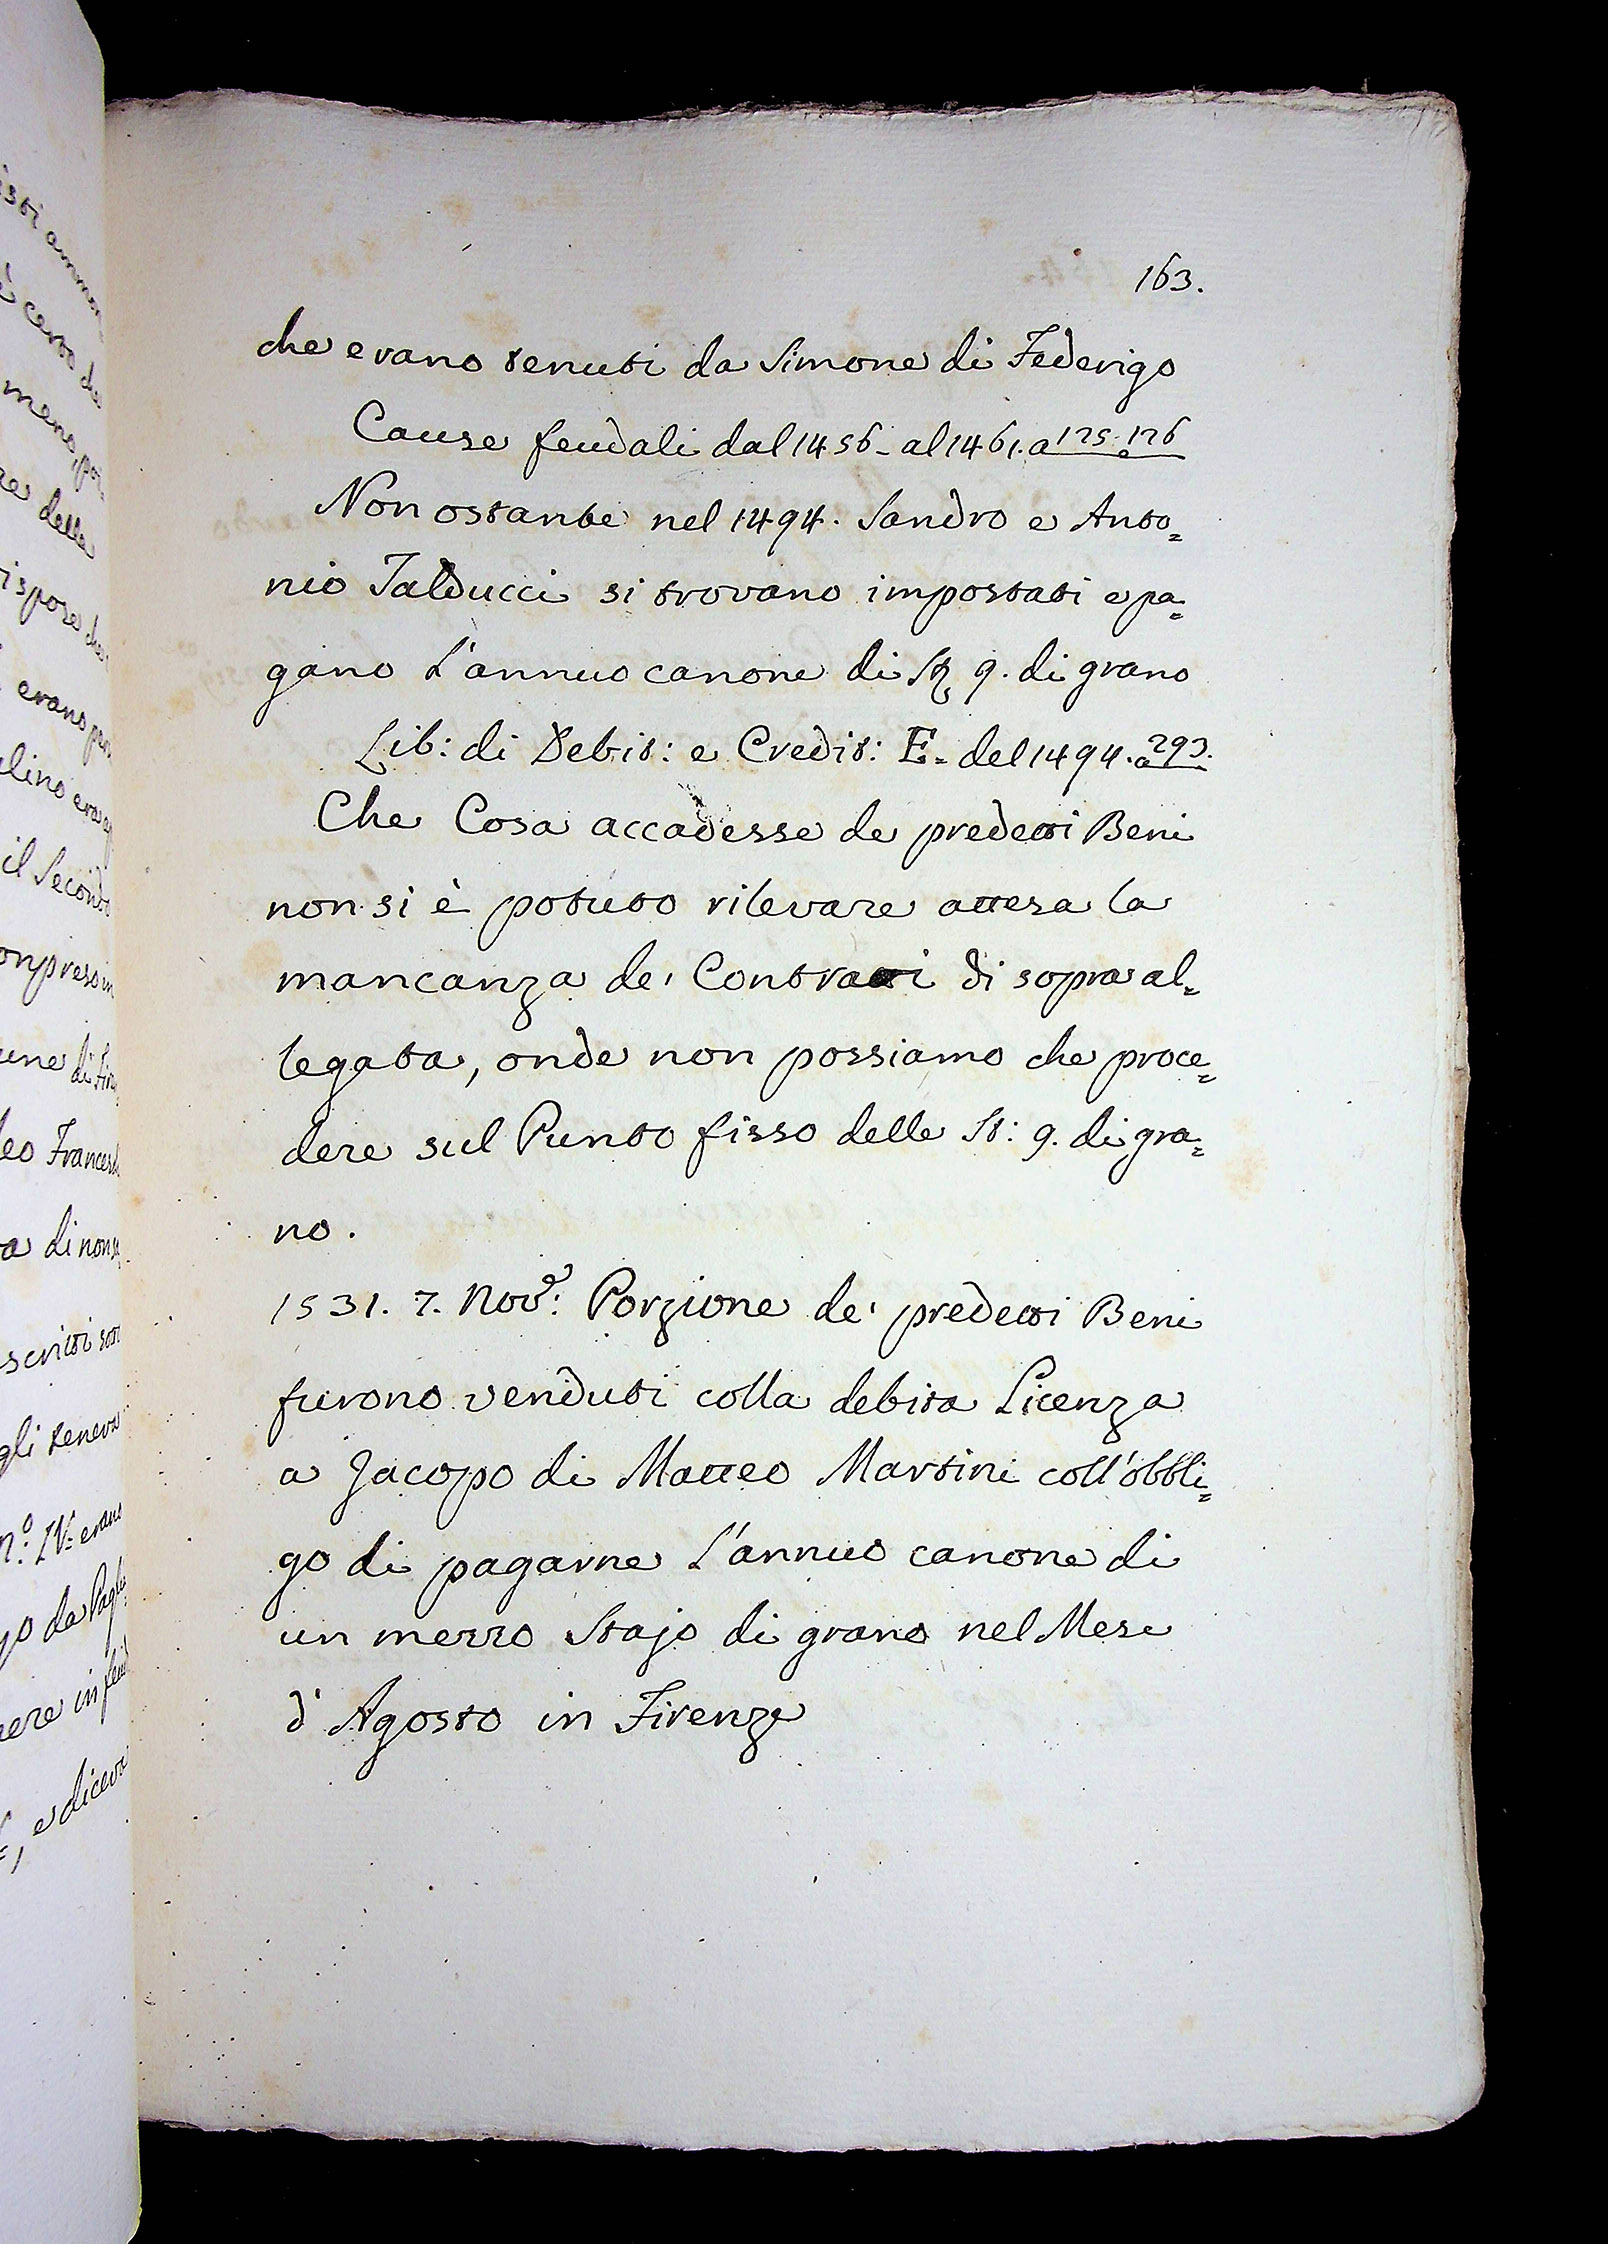 163.
che erano tenuti da Simone di Federigo
Cause feudali dal 1456- al 1461. a 125. 126
Non ostante nel 1494. Sandro e Anto=
nio Talducci si trovano impostati e pa=
gano L'annuo canone di St. 9. di grano
Lib: di Debit: e Credit: E. del 1494. a 293.
Che Cosa accadesse de predetti Beni
non si è potuto rilevare attesa la
mancanza de' Contratti di sopra al=
legata, onde non possiamo che proce=
dere sul Punto fisso delle St: 9. di gra=
no.
1531. 7. Nov.e: Porzione de' predetti Beni
furono venduti colla debita Licenza
a Jacopo di Matteo Martini coll'obbli=
go di pagarne L'annuo canone di
un mezzo Stajo di grano nel Mese
d'Agosto in Firenze